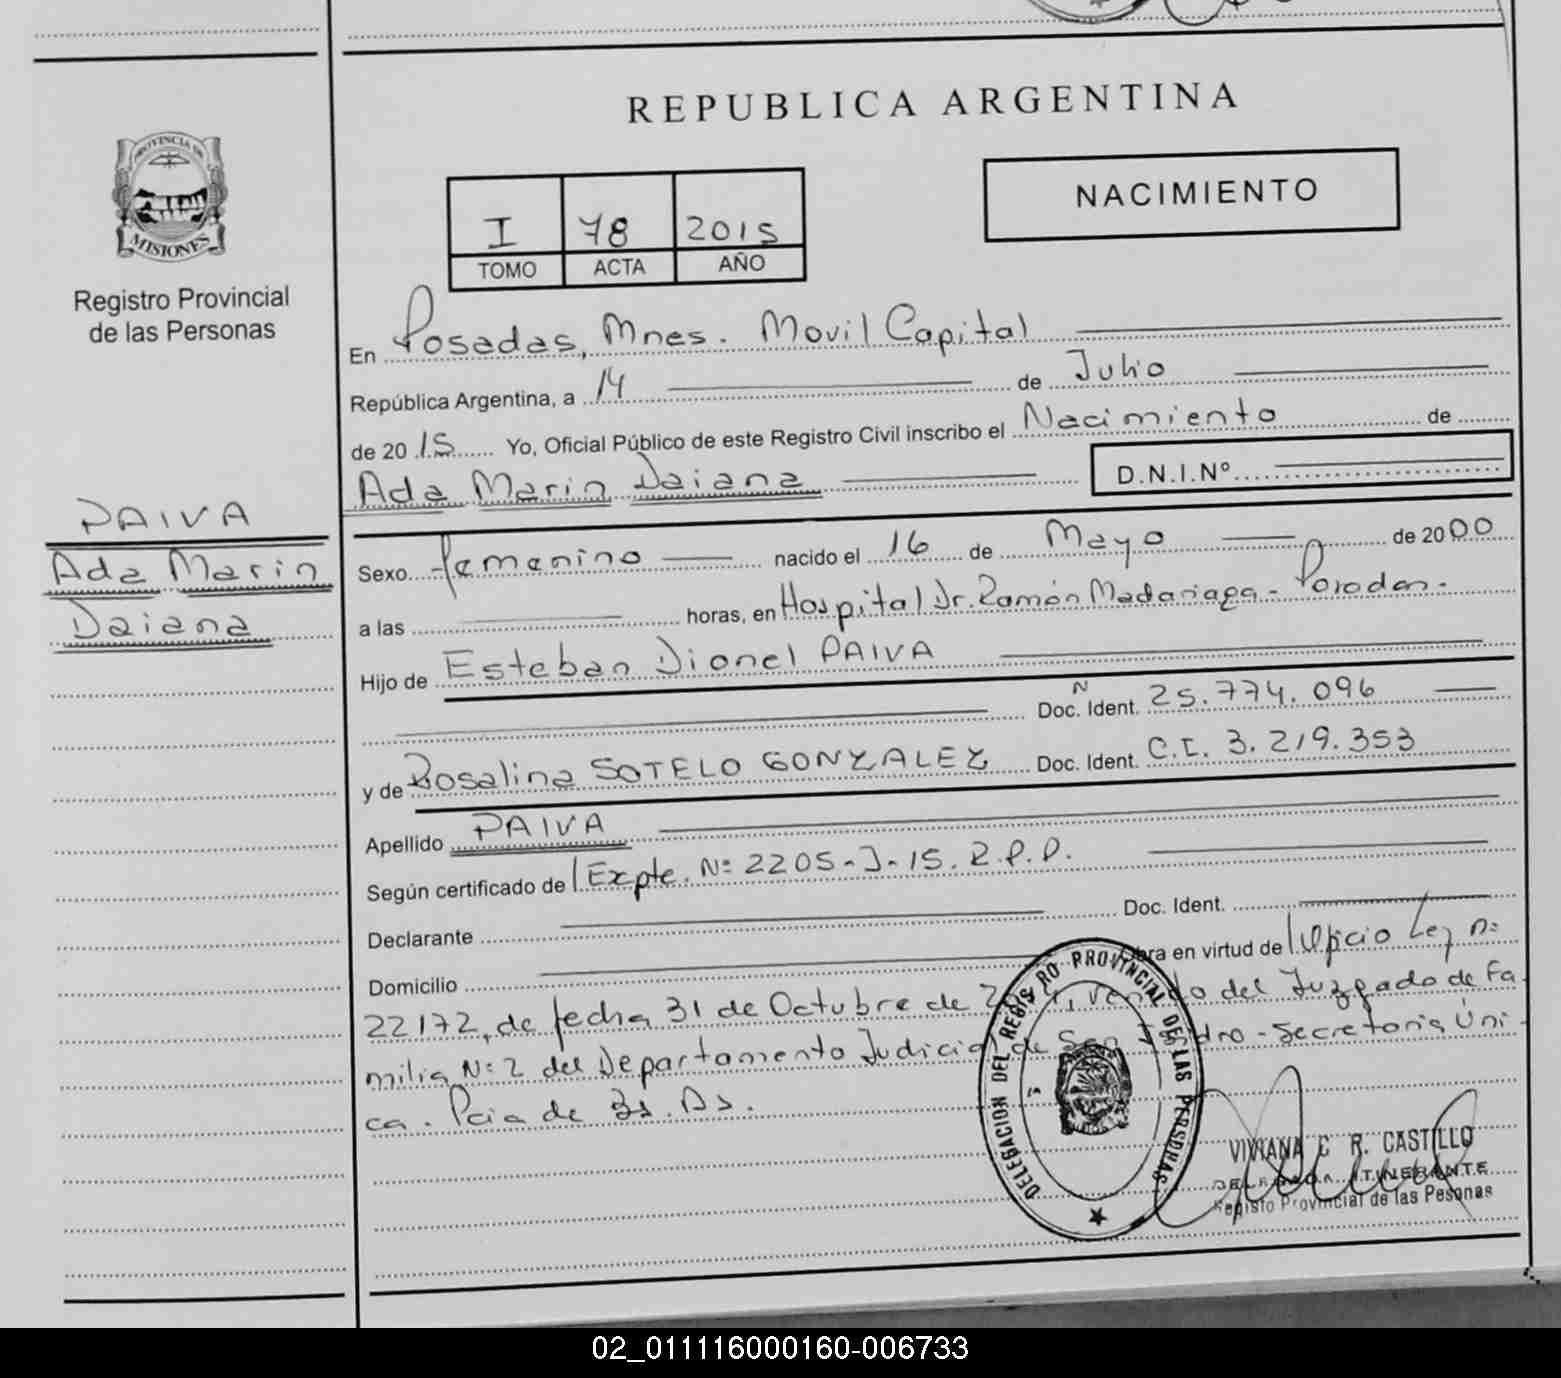 REPUBLICA ARGENTINA
PROVINCIA DE
MISIONES
Registro Provincial
de las Personas
NACIMIENTO
I 78 2015
TOMO ACTA AÑO
En Posadas, Mnes. Movil Capital
República Argentina, a 14 de Julio
de 2015 Yo, Oficial Público de este Registro Civil inscribo el Nacimiento de
Ada Marin Daiana D.N.I.Nº
PAIVA
Ada Marin
Daiana
Sexo Femenino nacido el 16 de Mayo de 2000
a las horas, en Hospital Dr. Ramón Madariaga - Posadas.
Hijo de Esteban Dionel PAIVA
N
Doc. Ident. 25.774.096
y de Rosalina SOTELO GONZALEZ Doc. Ident. C.I. 3.219.353
Apellido PAIVA
Según certificado de Expte. Nº 2205-J-15. R.P.P.
Declarante Doc. Ident.
Domicilio Obra en virtud de Oficio Ley nº
22172, de fecha 31 de Octubre de venido del Juzgado de Fa-
milia Nº 2 del Departamento Judicial de San Isidro - Secretaria Úni-
ca. Pcia de Bs. As.
DELEGACION DEL REGISTRO PROVINCIAL DE LAS PERSONAS
VIVIANA C. R. CASTILLO
DELEGADA ITINERANTE
Registo Provincial de las Pesonas
02_011116000160-006733